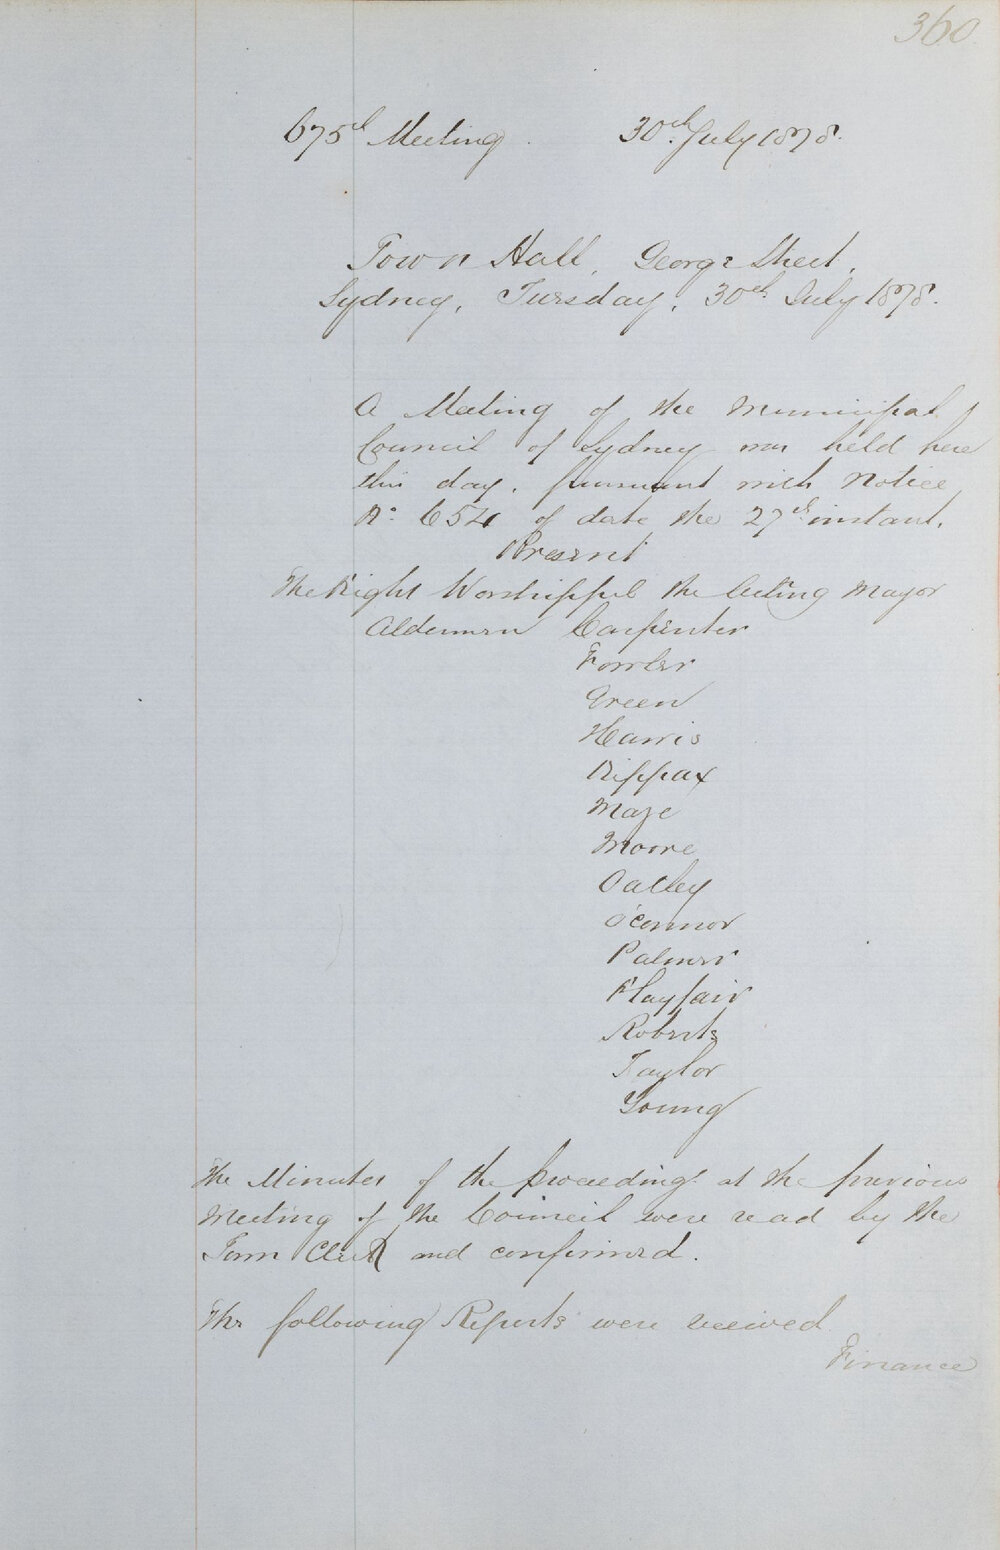 360
675th Meeting. 30th July 1878.
Town Hall, George Street,
Sydney, Tuesday, 30th July 1878.
A Meeting of the Municipal
Council of Sydney was held here
this day, pursuant with Notice
No. 654 of date the 27th instant.
Present
The Right Worshipful the Acting Mayor
Aldermen Carpenter
Fowler
Green
Harris
Kippax
Maze
Moore
Oatley
O'Connor
Palmer
Playfair
Roberts
Taylor
Young
The Minutes of the proceedings at the previous
Meeting of the Council were read by the
Town Clerk and confirmed.
The following Reports were received
Finance